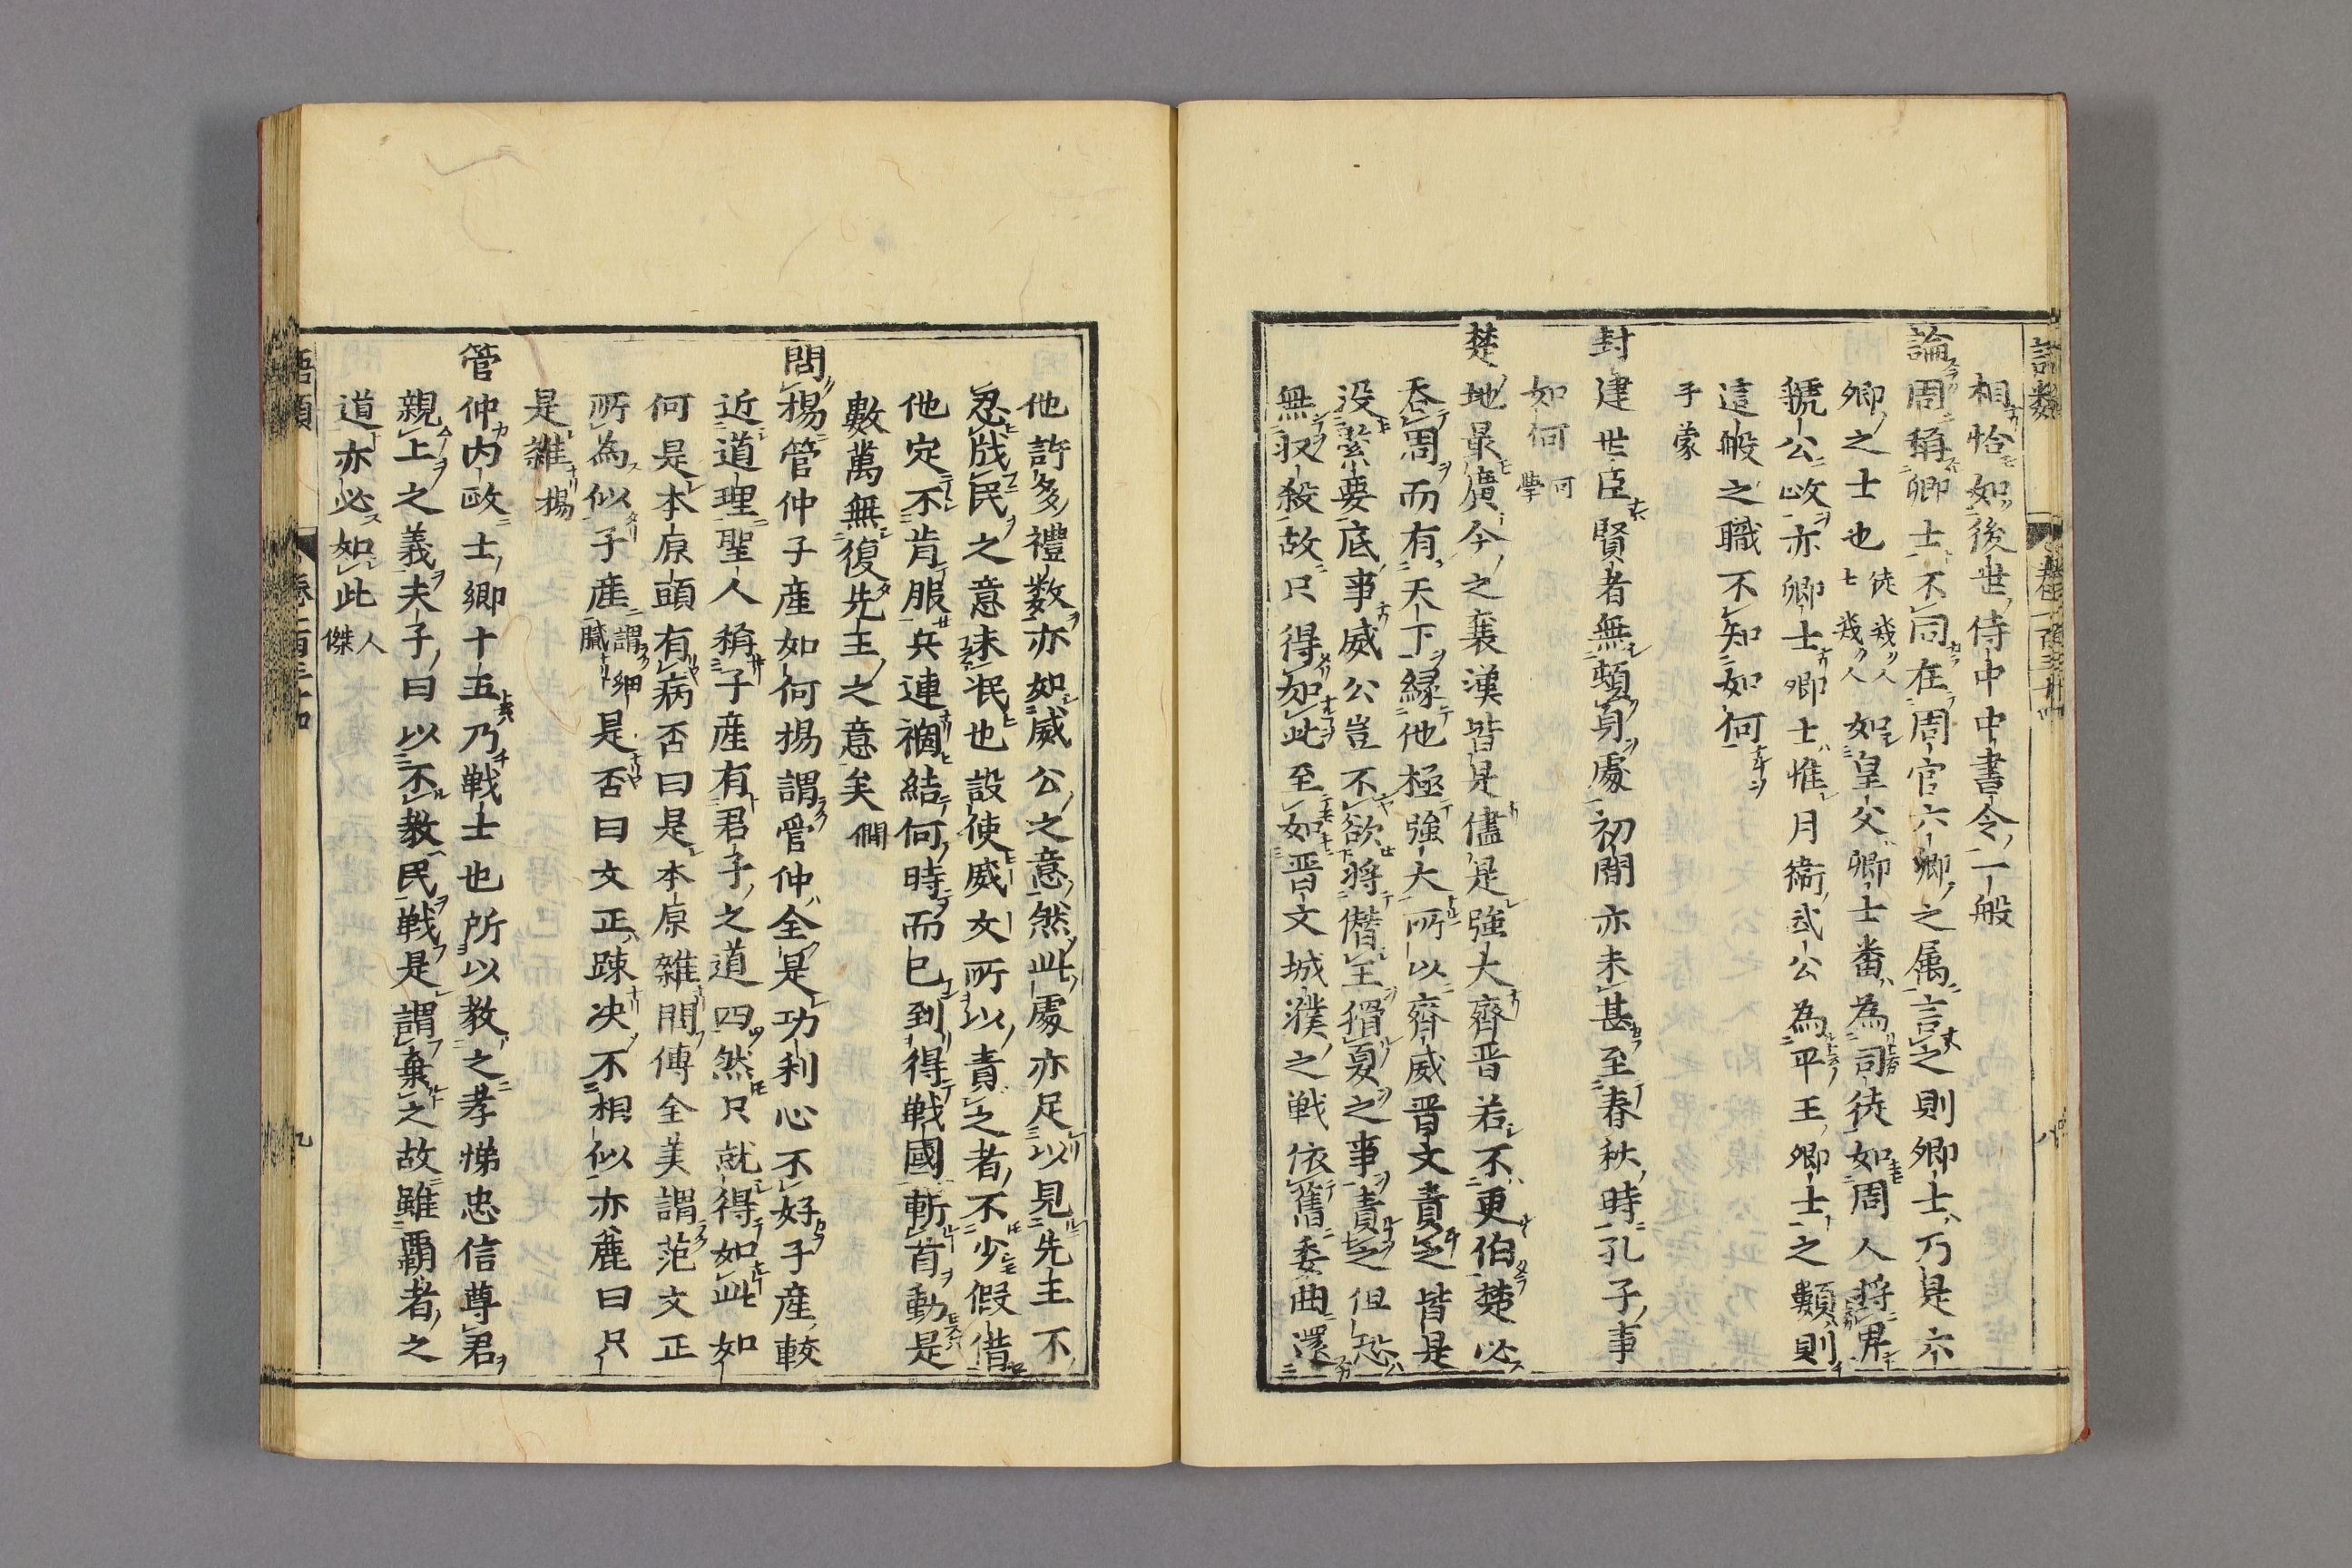 相恰如後世侍中中書令一般
論周稱卿士不同在周官六卿之属言之則卿士乃是六
卿之士也徒幾人士幾人如皇父卿士番為司徒如周人將畀
虢公政亦卿士卿士惟月衞武公為平王卿士之類則
這般之職不知如何
子蒙
封建世臣賢者無頓身處初間亦未甚至春秋時孔子事
如何可學
楚地最廣今之襄漢皆是儘是強大齊晋若不更伯楚必
吞周而有天下縁他極強大所以齊威晋文責之皆是
没緊要底事威公豈不欲將僭王猾夏之事責之但恐
無収殺故只得如此至如晋文城濮之戦依舊委曲還
他許多禮数亦如威公之意然此處亦足以見先王不
忍戕民之意未泯也設使威文所以責之者不少假借
他定不肯服兵連禍結何時而已到得戦國斬首動是
數萬無復先王之意矣僩
問揚管仲子産如何揚謂管仲全是功利心不好子産較
近道理聖人稱子産有君子之道四然只就得如此如
何是本原頭有病否曰是本原雑問傅全美謂范文正
所為似子産謂細膩是否曰文正踈决不相似亦麁曰只
是雑揚
管仲内政士卿十五乃戦士也所以教之孝悌忠信尊君
親上之義夫子曰以不教民戦是謂棄之故雖覇者之
道亦必如此人傑